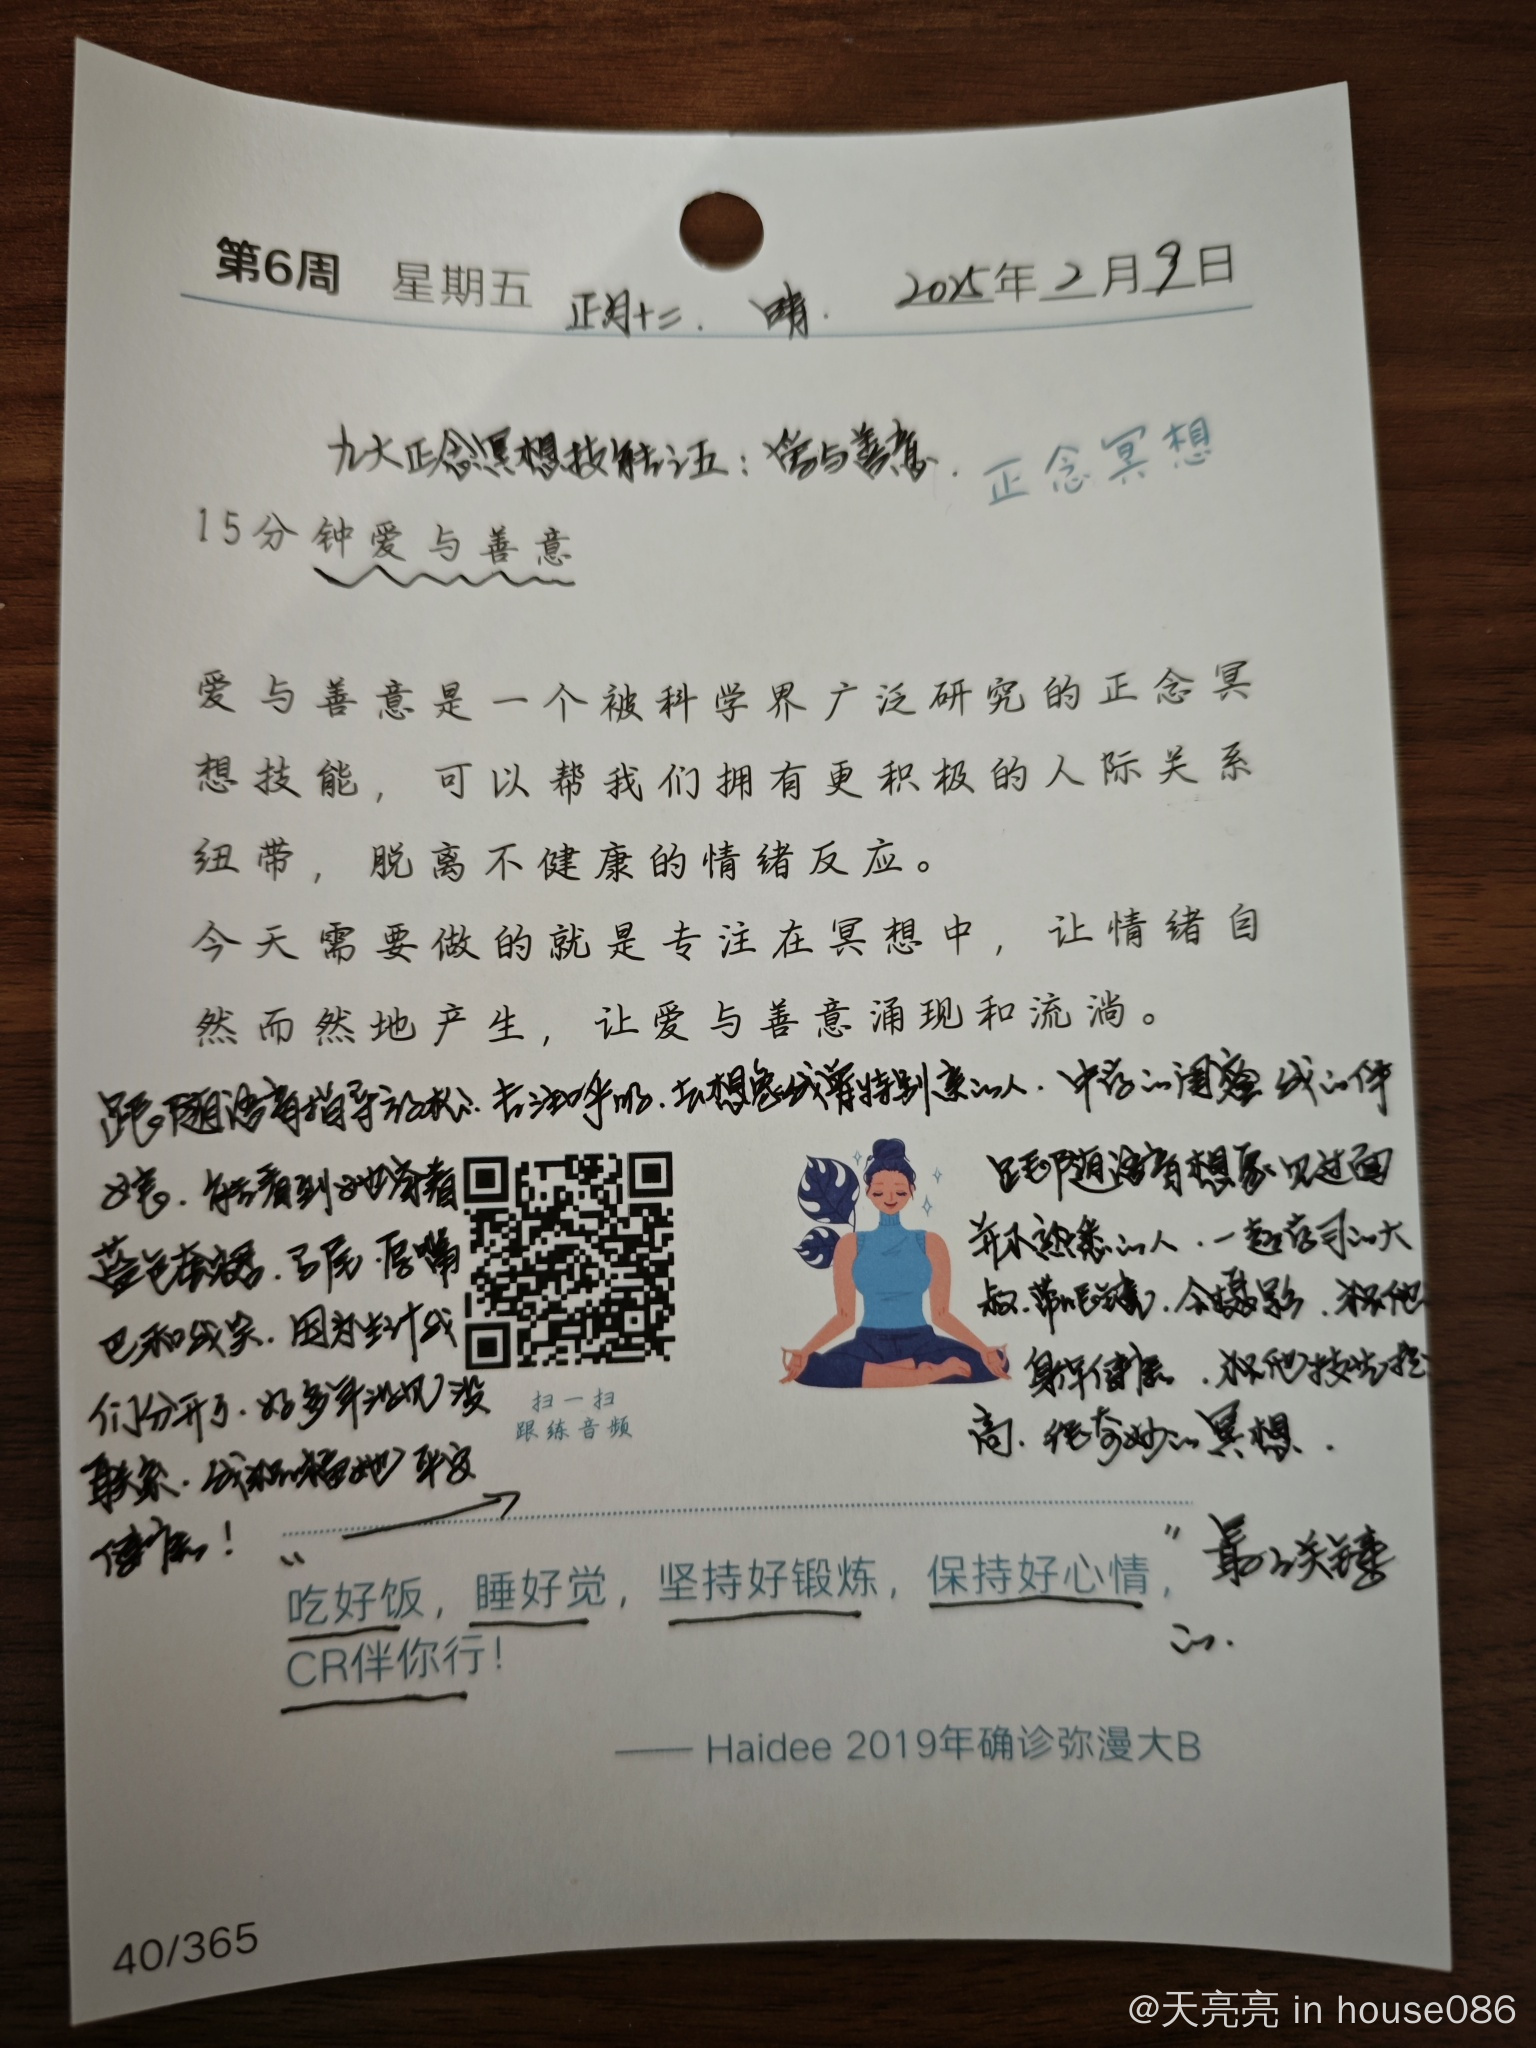 第6周 星期五 正月十二. 晴. 2025年2月9日
九大正念冥想技能之五：爱与善意.
正念冥想
15分钟爱与善意
爱与善意是一个被科学界广泛研究的正念冥
想技能，可以帮我们拥有更积极的人际关系
纽带，脱离不健康的情绪反应。
今天需要做的就是专注在冥想中，让情绪自
然而然地产生，让爱与善意涌现和流淌。
跟随语音指导放松.去注呼吸.去想象我有特别亲的人.
能看到她穿着
蓝色套裙.马尾.厚嘴
巴和我笑.因为生计我
们分开了.好多年没见没
联系.我祝福她平安
健康！
跟随语音想象见过面
并不熟悉的人.一起公司的大
叔.带眼镜.会摄影.祝他
身体健康.祝他技先
高.很奇妙的冥想.
扫一扫
跟练音频
“吃好饭，睡好觉，坚持好锻炼，保持好心情，” 最关键
CR伴你行！ 的.
—— Haidee 2019年确诊弥漫大B
40/365
@天亮亮 in house086